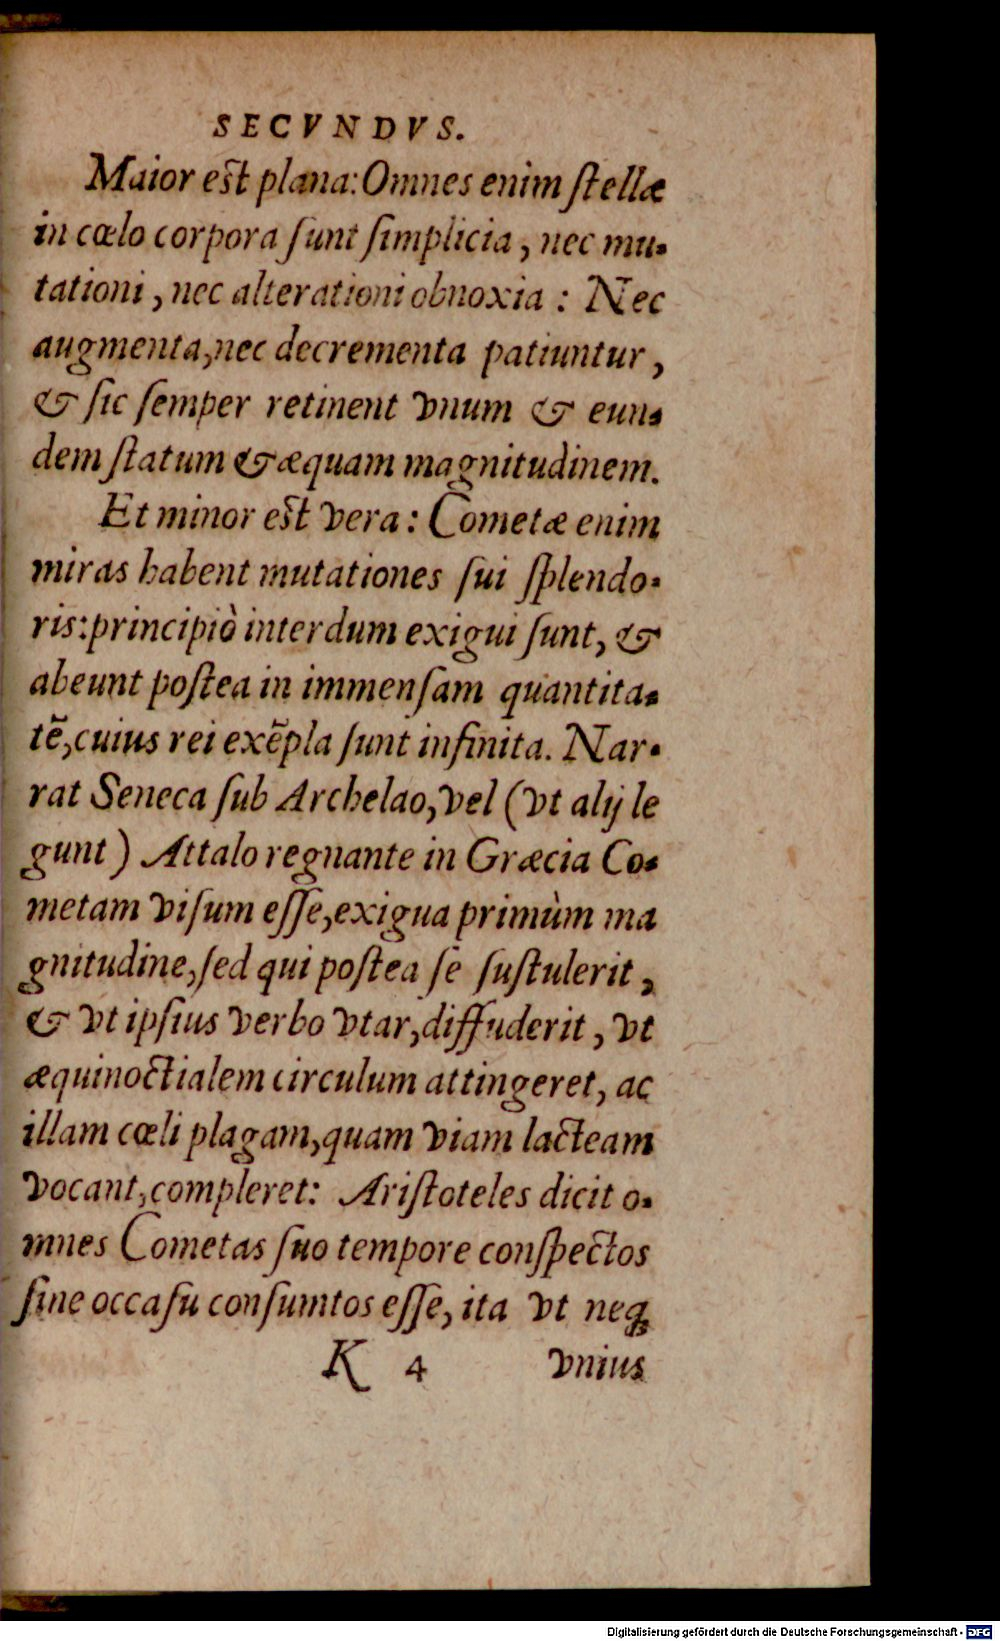 SECVNDVS.
Maior est plana: Omnes enim stellæ
in cœlo corpora sunt simplicia, nec mu-
tationi, nec alterationi obnoxia: Nec
augmenta, nec decrementa patiuntur,
& sic semper retinent vnum & eun-
dem statum & æquam magnitudinem.
Et minor est vera: Cometæ enim
miras habent mutationes sui splendo-
ris: principiò interdum exigui sunt, &
abeunt postea in immensam quantita-
tē, cuius rei exēpla sunt infinita. Nar-
rat Seneca sub Archelao, vel (vt alij le
gunt) Attalo regnante in Græcia Co-
metam visum esse, exigua primùm ma
gnitudine, sed qui postea se sustulerit,
& vt ipsius verbo vtar, diffuderit, vt
æquinoctialem circulum attingeret, ac
illam cœli plagam, quam viam lacteam
vocant, compleret: Aristoteles dicit o-
mnes Cometas suo tempore conspectos
sine occasu consumtos esse, ita vt neq;
K 4 vnius
Digitalisierung gefördert durch die Deutsche Forschungsgemeinschaft - DFG